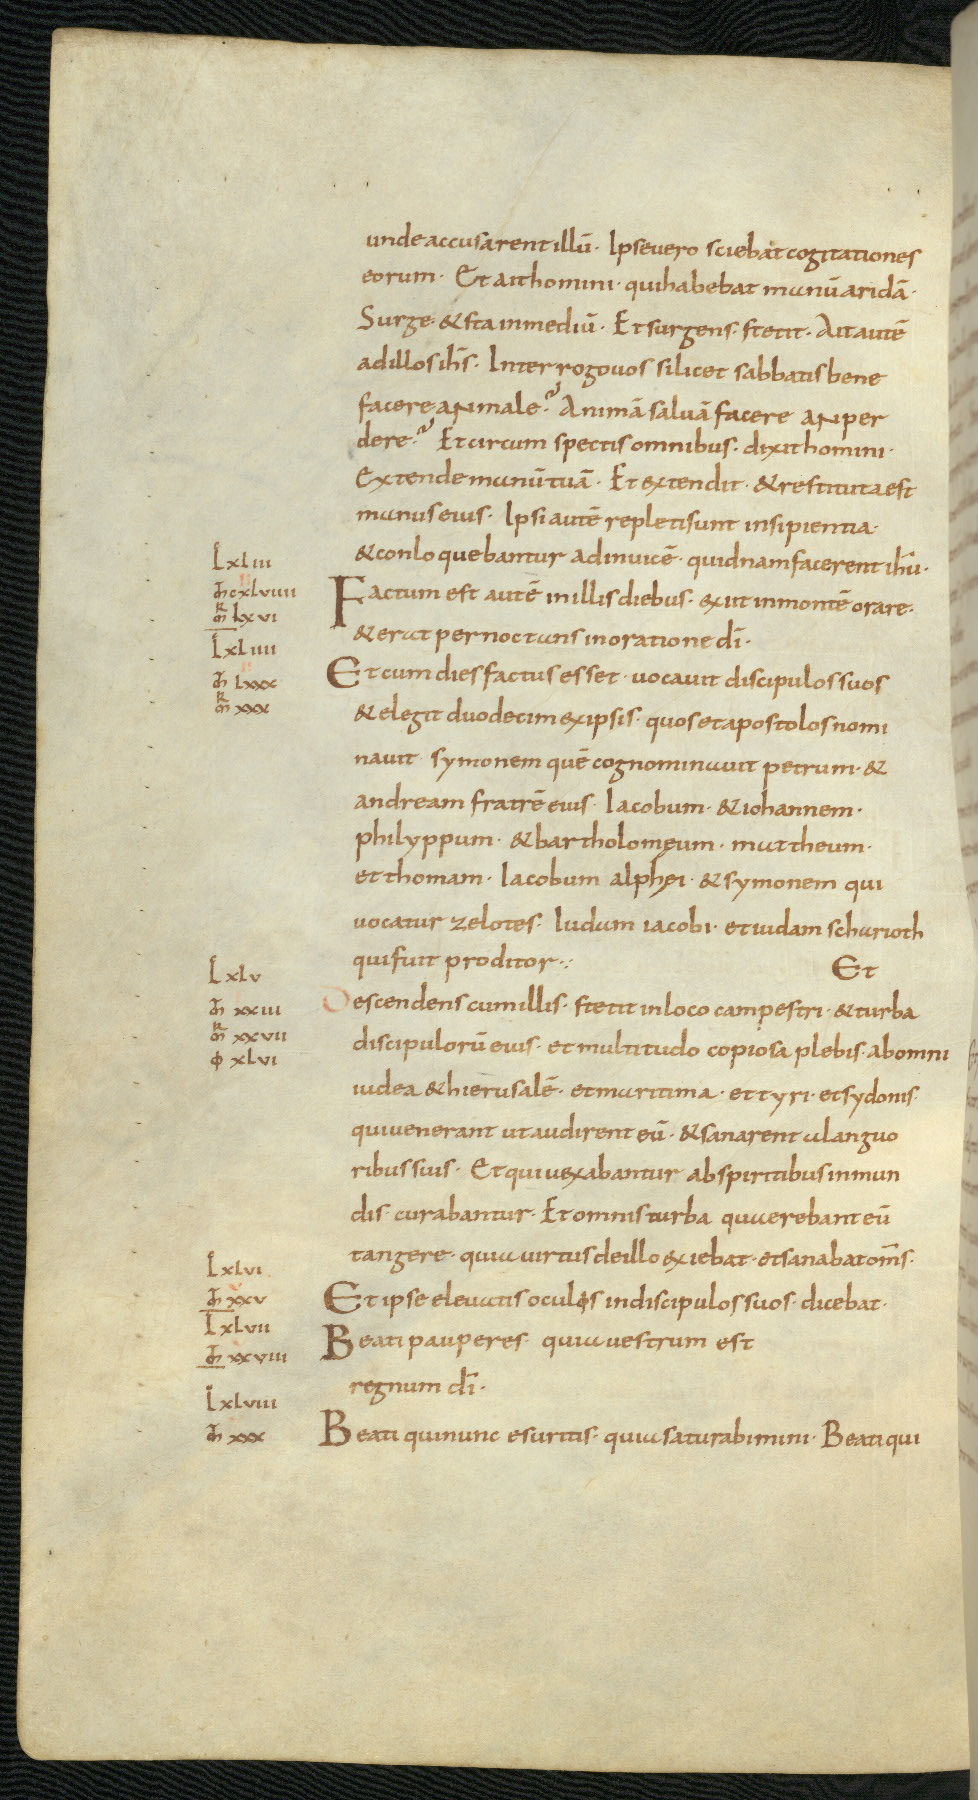 unde accusarent illū · Ipse uero sciebat cogitationes
eorum · Et ait homini · qui habebat manū aridā ·
Surge · & sta in mediū · Et surgens · stetit · Ait autē
ad illos ih̄s · Interrogo uos si licet sabbatis bene
facere an male ? Animā saluā facere an per
dere ? Et circum spectis omnibus · dixit homini ·
Extende manū tuā · Et extendit · & restituta est
manus eius · Ipsi autē repleti sunt insipientia ·
& conloquebantur ad inuicē · quid nam facerent ih̄u ·
L xliii
m̄ cxlviiii
mr̄ lxvi
Factum est autē in illis diebus · exiit in montē orare ·
& erat pernoctans in oratione dī ·
L xliiii
m̄ lxxx
mr̄ xxx
Et cum dies factus esset · uocauit discipulos suos
& elegit duodecim ex ipsis · quos et apostolos nomi
nauit · symonem quē cognominauit petrum · &
andream fratrē eius · Iacobum · & iohannem ·
philyppum · & bartholomęum · mattheum ·
et thomam · Iacobum alphęi · & symonem qui
uocatur zelotes · Iudam iacobi · et iudam scharioth
qui fuit proditor · : Et
L xlv
m̄ xxiii
mr̄ xxvii
φ xlvi
Descendens cum illis · stetit in loco campestri · & turba
discipulorū eius · et multitudo copiosa plebis · ab omni
iudea & hierusalē · et maritima · et tyri · et sydonis ·
qui uenerant ut audirent eū · & sanarent a languo
ribus suis · Et qui uexabantur ab spiritibus inmun
dis · curabantur · Et omnis turba querebant eū
tangere · quia uirtus de illo exiebat · et sanabat om̄s ·
L xlvi
m̄ xxv
Et ipse eleuatis oculos in discipulos suos · dicebat ·
L xlvii
m̄ xxviii
Beati pauperes quia uestrum est
regnum dī ·
L xlviii
m̄ xxx
Beati qui nunc esuritis · quia saturabimini · Beati qui